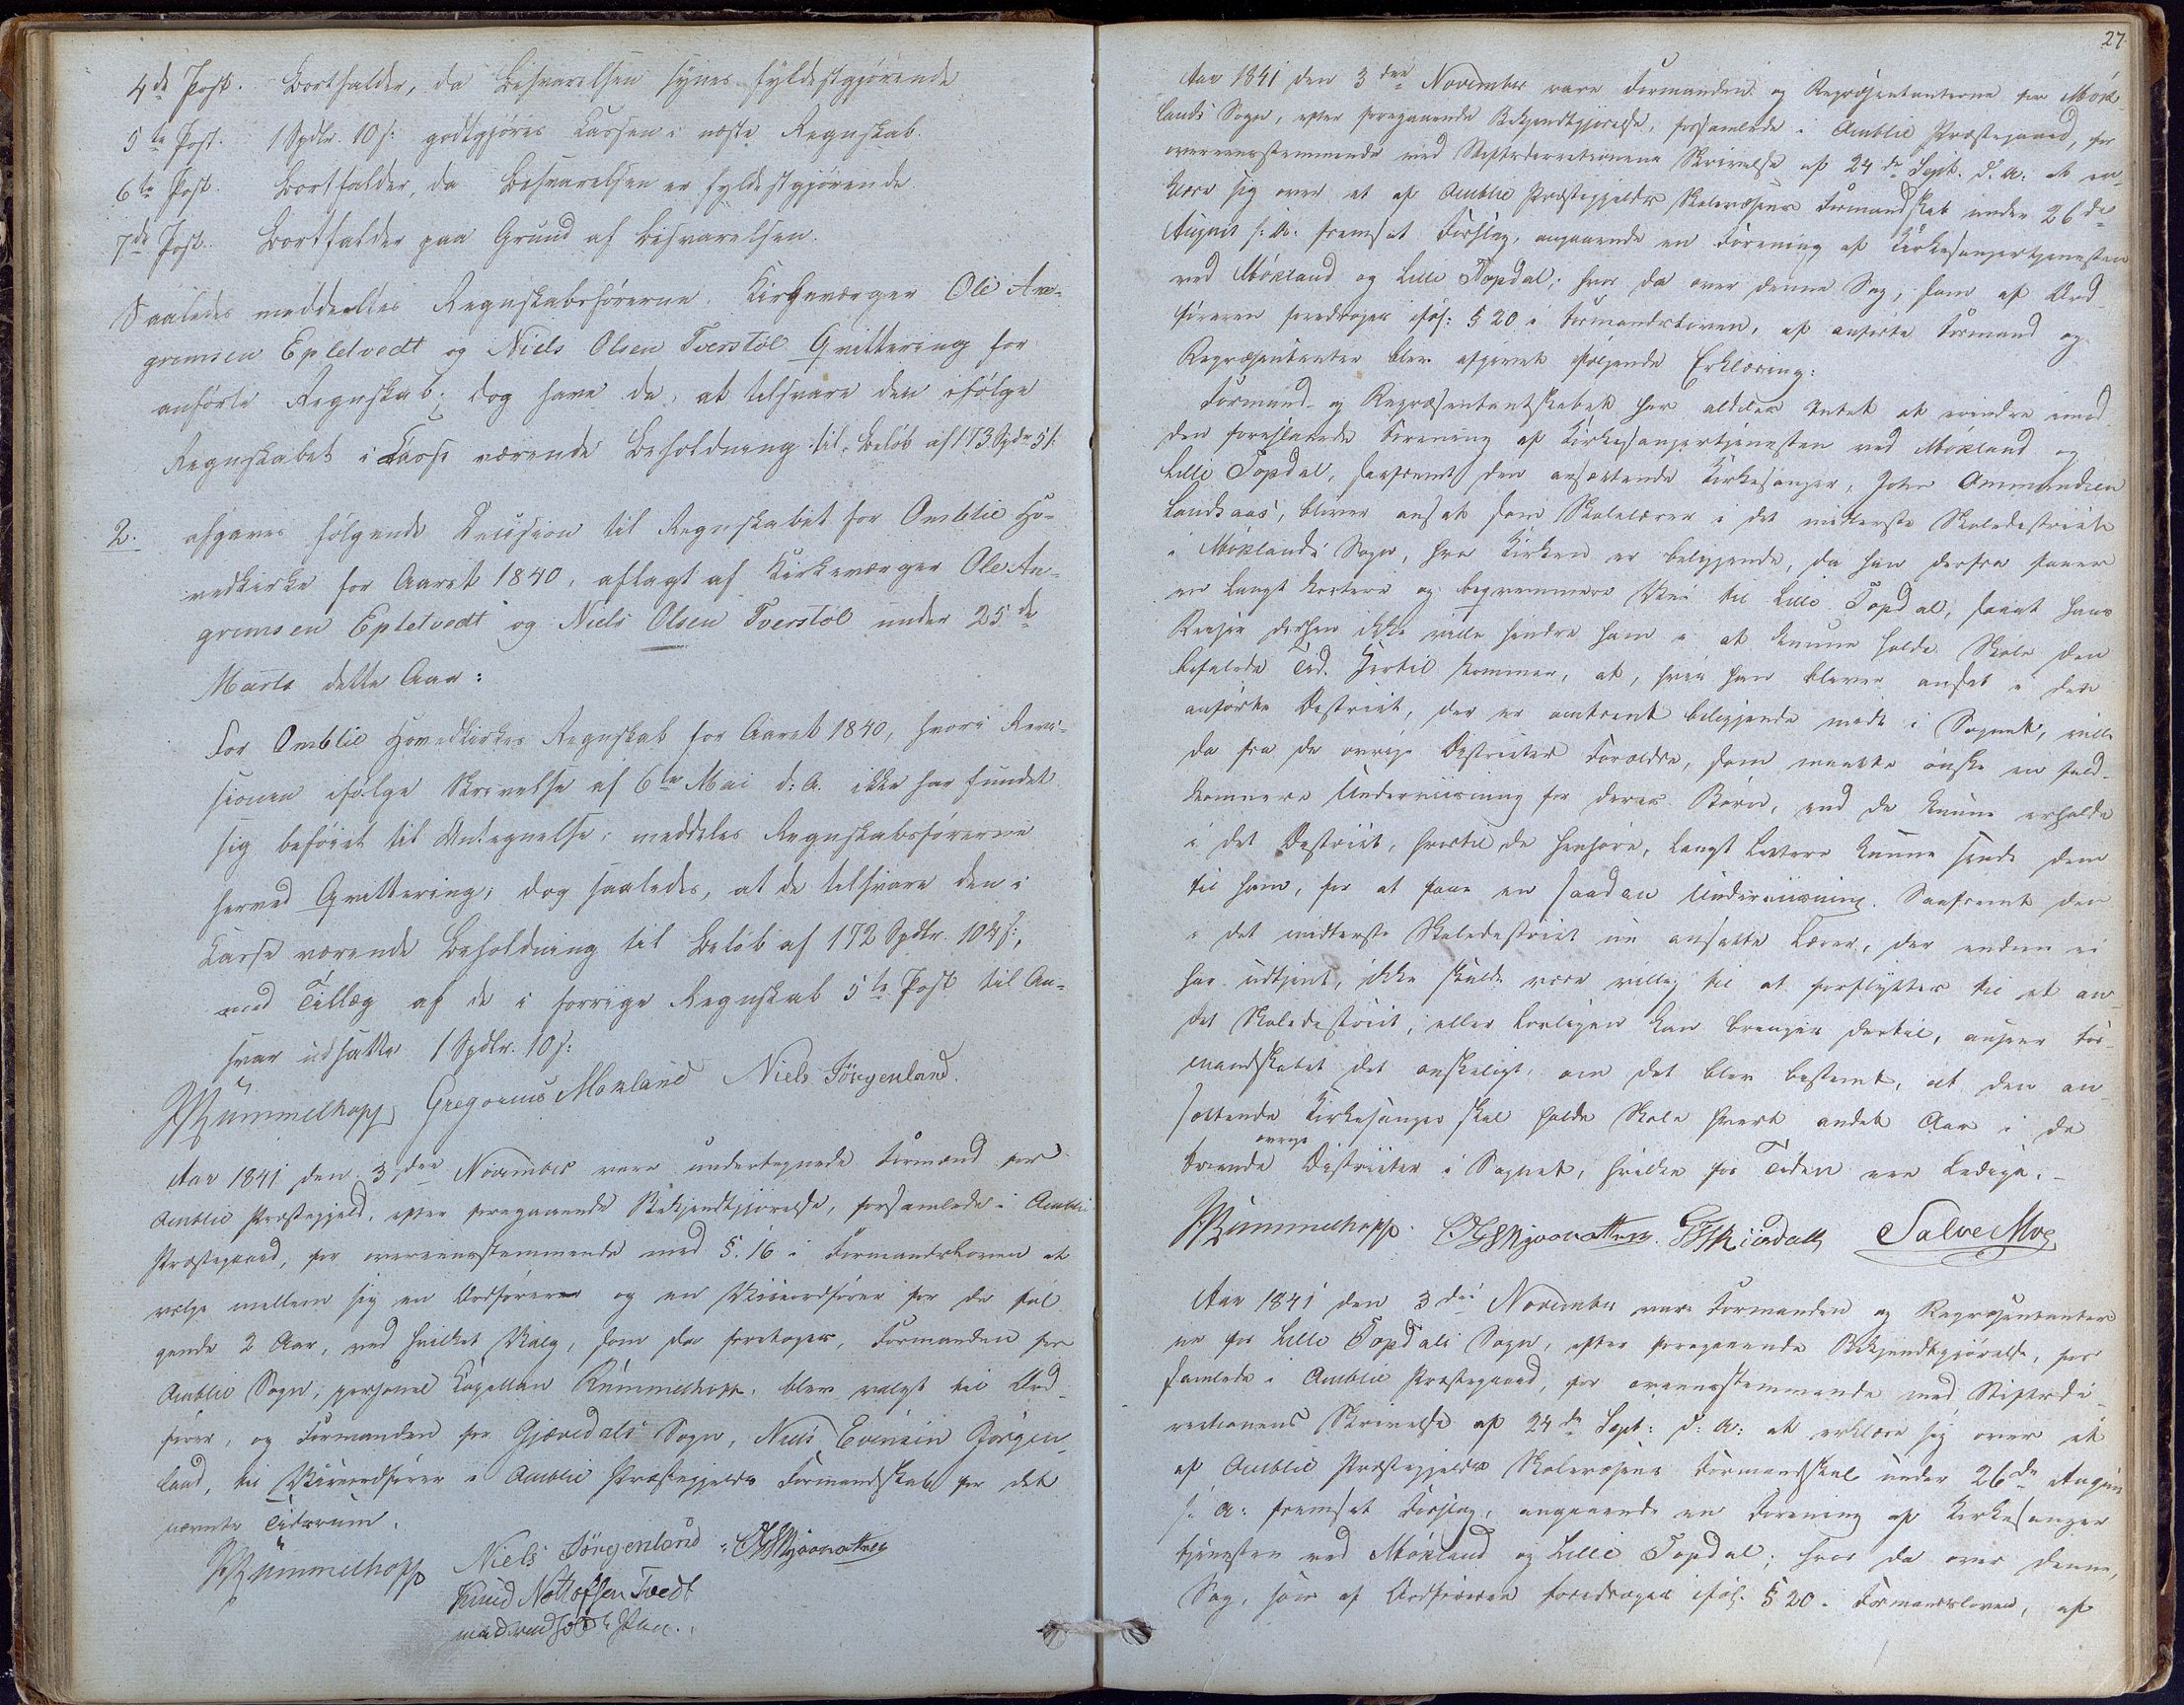 4de Post. Bortfalder, da Besvarelsen synes fyldestgjörende
5te Post. 1 Spdlr. 10 s: godtgjöres Cassen i næste Regnskab.
6te Post. Bortfalder, da Besvarelsen er fyldestgjörende.
7de Post. Bortfalder paa Grund af Besvarelsen.
Saaledes meddeeltes Regnskabsförerne Kirkeværger Ole An-
gremsen Epletvedt og Niels Olsen Tverstöl Qvittering for
anförte Regnskab; dog have de, at tilsvare den ifölge
Regnskabet i Casse værende Beholdning til Belöb af 173 Spdr 5 s:
2. afgaves fölgende Decision til Regnskabet for Omblie Ho-
vedkirke for Aaret 1840, aflagt af Kirkeværger Ole An-
gremsen Epletvedt og Niels Olsen Tverstöl under 25de
Marts dette Aar:
For Omblie Hovedkirkes Regnskab for Aaret 1840, hvori Revi-
sionen ifölge Skrivelse af 6te Mai d: A. ikke har fundet
sig beföiet til Antegnelse, meddeles Regnskabsförerne
herved Qvittering; dog saaledes, at de tilsvare den i
Casse værende Beholdning til Belöb af 172 Spdlr. 104 s:,
med Tillæg af de i forrige Regnskab 5te Post til An-
svar udsatte 1 Spdlr. 10 s:
Rümmelhopf Gregorius Mökland Niels Jörgenland.
Aar 1841 den 3die November vare undertegnede Formænd for
Omblie Præstegjeld, efter foregaaende Bekjendtgjörelse, forsamlede i Omblie
Præstegaard, for overeensstemmende med §. 16 i Formandsloven at
vælge mellem sig en Ordförer og en Viceordförer for de föl-
gende 2 Aar, ved hvilket Valg, som da foretoges, Formanden for
Omblie Sogn, personel Capellan Rümmelhopf, blev valgt til Ord-
förer, og Formanden for Gjævedals Sogn, Niels Evensen Jörgen-
land, til Viceordförer i Omblie Præstegjelds Formandskab for det
nævnte Tidsrum.
Rümmelhopf Niels Jörgenland
Knud Nottolfsen Tvedt
med ved holdt Pen.
27.
Aar 1841 den 3die November vare Formanden og Repræsentanterne for Mök-
lands Sogn, efter foregaaende Bekjendtgjörelse, forsamlede i Omblie Præstegaard, for
overeensstemmende med Stiftsdirectionens Skrivelse af 24de Sept. d. A. at er-
klære sig over et af Omblie Præstegjelds Skolevæsens Formandskab under 26de
August s. A. fremsat Forslag, angaaende en Forening af Kirkesangertjenesten
ved Mökland og Lille Topdal; hvor da over denne Sag, som af Ord-
föreren foredroges ifölg: § 20 i Formandsloven, af anförte Formand og
Repræsentanter blev afgivet fölgende Erklæring:
Formand- og Repræsentantskabet har aldeles Intet at erindre imod
den foreslaaede Forening af Kirkesangertjenesten ved Mökland og
Lille Topdal, saafremt den ansættende Kirkesanger, John Ommundsen
Landsaas, bliver ansat som Skolelærer i det midterste Skoledistrict
i Möklands Sogn, hvor Kirken er beliggende, da han derfra faaer
en langt kortere og beqvemmere Vei til Lille Topdal, saaat hans
Reiser derhen ikke ville hindre ham i at kunne holde Skole den
befalede Tid. Hertil kommer, at, hvis han bliver ansat i det
anförte District, der er omtrent beliggende midt i Sognet, ville
da fra de övrige Districter Forældre, som maatte önske en fuld-
komnere Underviisning for deres Börn, end de kunne erholde
i det District, hvortil de henhöre, langt lettere kunne sende dem
til ham, for at faae en saadan Underviisning. Saafremt den
i det midterste Skoledistrict nu ansatte Lærer, der endnu ei
har udtjent, ikke skulde være villig til at forflyttes til et an-
det Skoledistrict, eller lovligen kan bringes dertil, anseer For-
mandskabet det önskeligt, om det blev bestemt, at den an-
sættende Kirkesanger skal holde Skole hvert andet Aar i de
tvende övrige Districter i Sognet, hvilke for Tiden ere ledige. –
Rümmelhopf. Salve Moe
Aar 1841 den 3die November vare Formanden og Repræsentanter-
ne for Lille Topdals Sogn, efter foregaaende Bekjendtgjörelse, for-
samlede i Omblie Præstegaard, for overeensstemmende med Stiftsdi-
rectionens Skrivelse af 24de Sept: d: A: at erklære sig over et
af Omblie Præstegjelds Skolevæsens Formandskab under 26de August
s: A: fremsat Forslag, angaaende en Forening af Kirkesanger-
tjenesten ved Mökland og Lille Topdal; hvor da over denne
Sag, som af Ordföreren foredroges ifölg. § 20 i Formandsloven, af